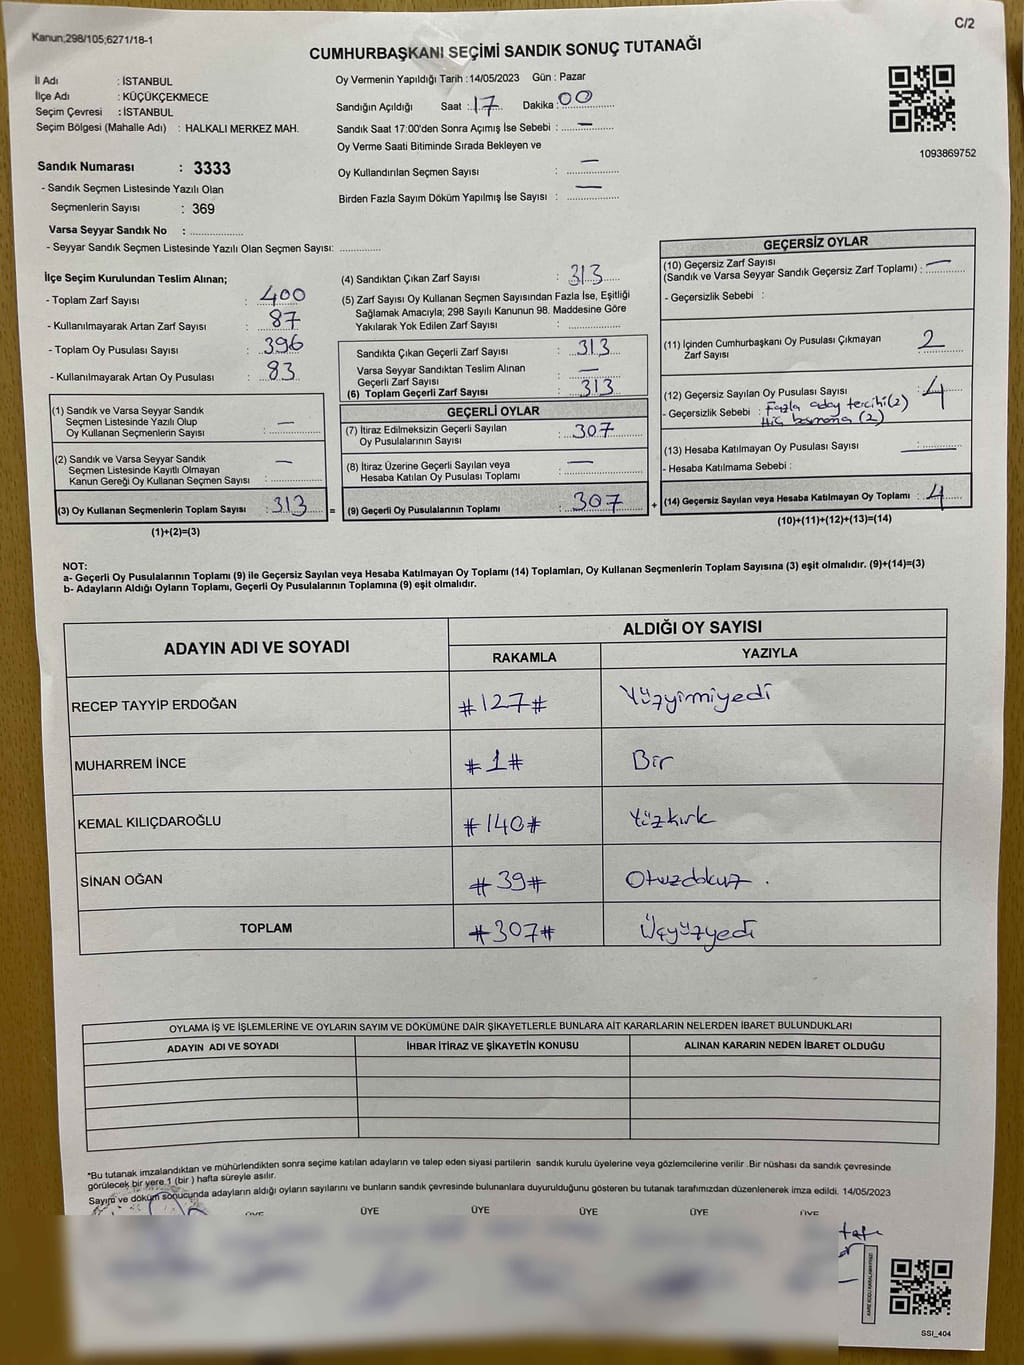 Kanun;298/105,6271/18-1
C/2
CUMHURBAŞKANI SEÇİMİ SANDIK SONUÇ TUTANAĞI
İl Adı : İSTANBUL
İlçe Adı : KÜÇÜKÇEKMECE
Seçim Çevresi : İSTANBUL
Seçim Bölgesi (Mahalle Adı) : HALKALI MERKEZ MAH.
Oy Vermenin Yapıldığı Tarih :14/05/2023 Gün : Pazar
Sandığın Açıldığı Saat :17 Dakika :00
Sandık Saat 17:00'den Sonra Açımış İse Sebebi : —
Oy Verme Saati Bitiminde Sırada Bekleyen ve
Oy Kullandırılan Seçmen Sayısı : —
Birden Fazla Sayım Döküm Yapılmış İse Sayısı : —
1093869752
Sandık Numarası : 3333
- Sandık Seçmen Listesinde Yazılı Olan
Seçmenlerin Sayısı : 369
Varsa Seyyar Sandık No :
- Seyyar Sandık Seçmen Listesinde Yazılı Olan Seçmen Sayısı:
İlçe Seçim Kurulundan Teslim Alınan;
- Toplam Zarf Sayısı : 400
- Kullanılmayarak Artan Zarf Sayısı : 87
- Toplam Oy Pusulası Sayısı : 396
- Kullanılmayarak Artan Oy Pusulası : 83
(1) Sandık ve Varsa Seyyar Sandık
Seçmen Listesinde Yazılı Olup
Oy Kullanan Seçmenlerin Sayısı : —
(2) Sandık ve Varsa Seyyar Sandık
Seçmen Listesinde Kayıtlı Olmayan
Kanun Gereği Oy Kullanan Seçmen Sayısı : —
(3) Oy Kullanan Seçmenlerin Toplam Sayısı : 313
(1)+(2)=(3)
=
(4) Sandıktan Çıkan Zarf Sayısı : 313
(5) Zarf Sayısı Oy Kullanan Seçmen Sayısından Fazla İse, Eşitliği
Sağlamak Amacıyla; 298 Sayılı Kanunun 98. Maddesine Göre
Yakılarak Yok Edilen Zarf Sayısı :
Sandıkta Çıkan Geçerli Zarf Sayısı : 313
Varsa Seyyar Sandıktan Teslim Alınan
Geçerli Zarf Sayısı : —
(6) Toplam Geçerli Zarf Sayısı : 313
GEÇERLİ OYLAR
(7) İtiraz Edilmeksizin Geçerli Sayılan
Oy Pusulalarının Sayısı : 307
(8) İtiraz Üzerine Geçerli Sayılan veya
Hesaba Katılan Oy Pusulası Toplamı : —
(9) Geçerli Oy Pusulalarının Toplamı : 307
+
GEÇERSİZ OYLAR
(10) Geçersiz Zarf Sayısı
(Sandık ve Varsa Seyyar Sandık Geçersiz Zarf Toplamı) : —
- Geçersizlik Sebebi :
(11) İçinden Cumhurbaşkanı Oy Pusulası Çıkmayan
Zarf Sayısı : 2
(12) Geçersiz Sayılan Oy Pusulası Sayısı : 4
- Geçersizlik Sebebi : Fazla aday tercihi(2)
Hiç basmama (2)
(13) Hesaba Katılmayan Oy Pusulası Sayısı : —
- Hesaba Katılmama Sebebi :
(14) Geçersiz Sayılan veya Hesaba Katılmayan Oy Toplamı : 4
(10)+(11)+(12)+(13)=(14)
NOT:
a- Geçerli Oy Pusulalarının Toplamı (9) ile Geçersiz Sayılan veya Hesaba Katılmayan Oy Toplamı (14) Toplamları, Oy Kullanan Seçmenlerin Toplam Sayısına (3) eşit olmalıdır. (9)+(14)=(3)
b- Adayların Aldığı Oyların Toplamı, Geçerli Oy Pusulalarının Toplamına (9) eşit olmalıdır.
ADAYIN ADI VE SOYADI
ALDIĞI OY SAYISI
RAKAMLA YAZIYLA
RECEP TAYYİP ERDOĞAN #127# Yüzyirmiyedi
MUHARREM İNCE #1# Bir
KEMAL KILIÇDAROĞLU #140# Yüzkırk
SİNAN OĞAN #39# Otuzdokuz .
TOPLAM #307# Üçyüzyedi
OYLAMA İŞ VE İŞLEMLERİNE VE OYLARIN SAYIM VE DÖKÜMÜNE DAİR ŞİKAYETLERLE BUNLARA AİT KARARLARIN NELERDEN İBARET BULUNDUKLARI
ADAYIN ADI VE SOYADI İHBAR İTİRAZ VE ŞİKAYETİN KONUSU ALINAN KARARIN NEDEN İBARET OLDUĞU
"Bu tutanak imzalandıktan ve mühürlendikten sonra seçime katılan adayların ve talep eden siyasi partilerin sandık kurulu üyelerine veya gözlemcilerine verilir .Bir nüshası da sandık çevresinde
görülecek bir yere 1 (bir) hafta süreyle asılır.
Sayım ve döküm sonucunda adayların aldığı oyların sayılarını ve bunların sandık çevresinde bulunanlara duyurulduğunu gösteren bu tutanak tarafımızdan düzenlenerek imza edildi. 14/05/2023
ÜYE ÜYE ÜYE ÜYE ÜYE ÜYE
SSI_404